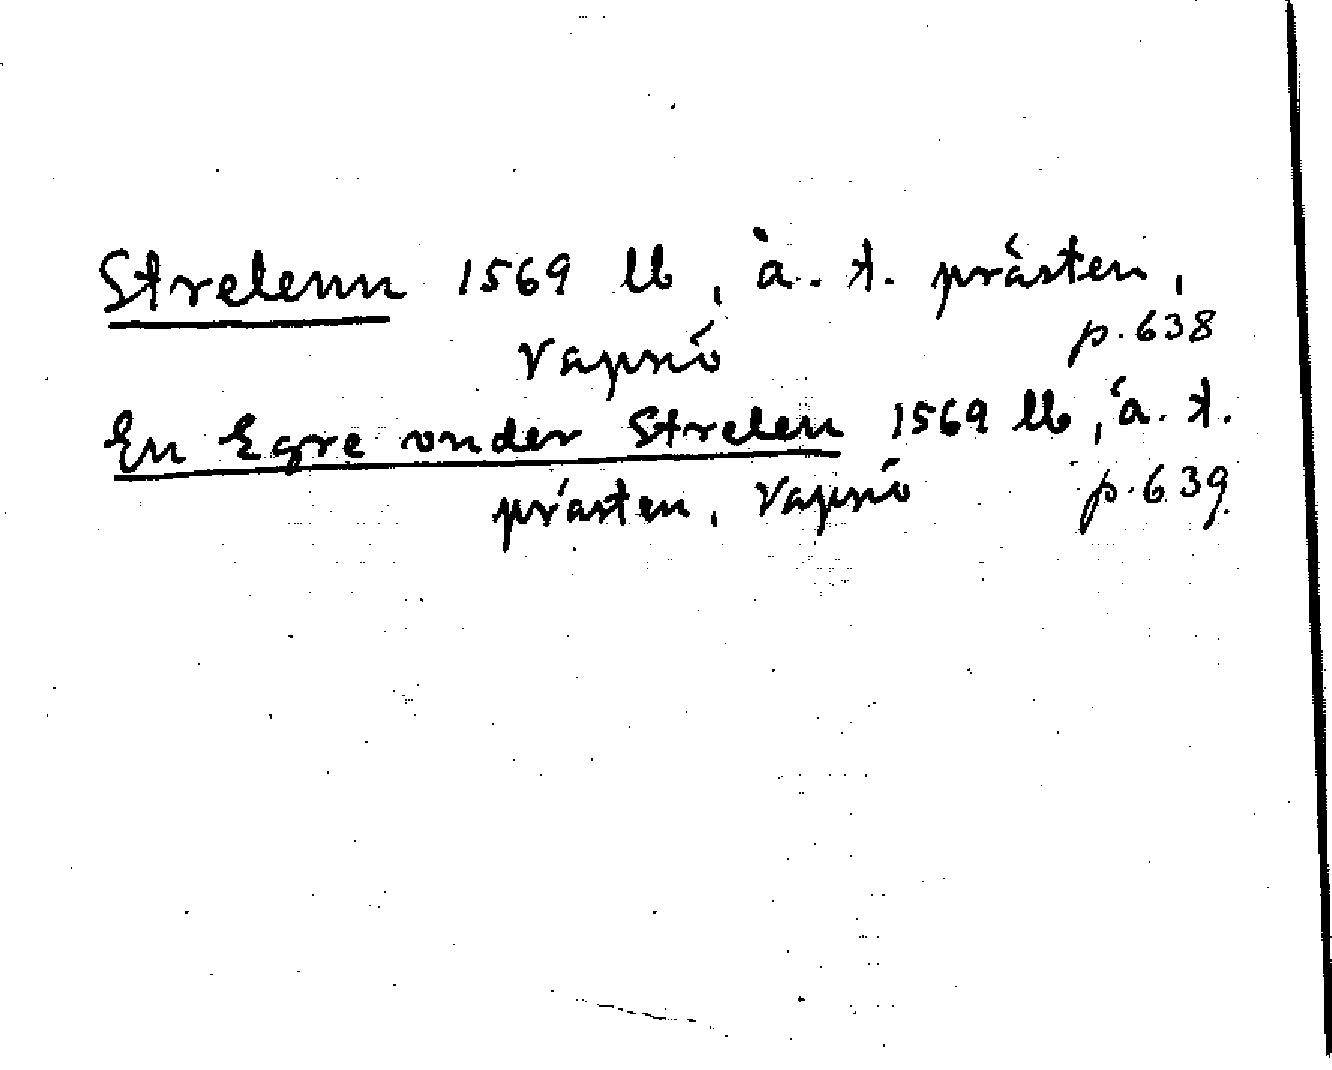 Strelenn 1569 lb, å. t. prästen,
Vapnö p. 638
En Egre vnder Strelen 1569 lb, å. t.
prästen, Vapnö p. 639